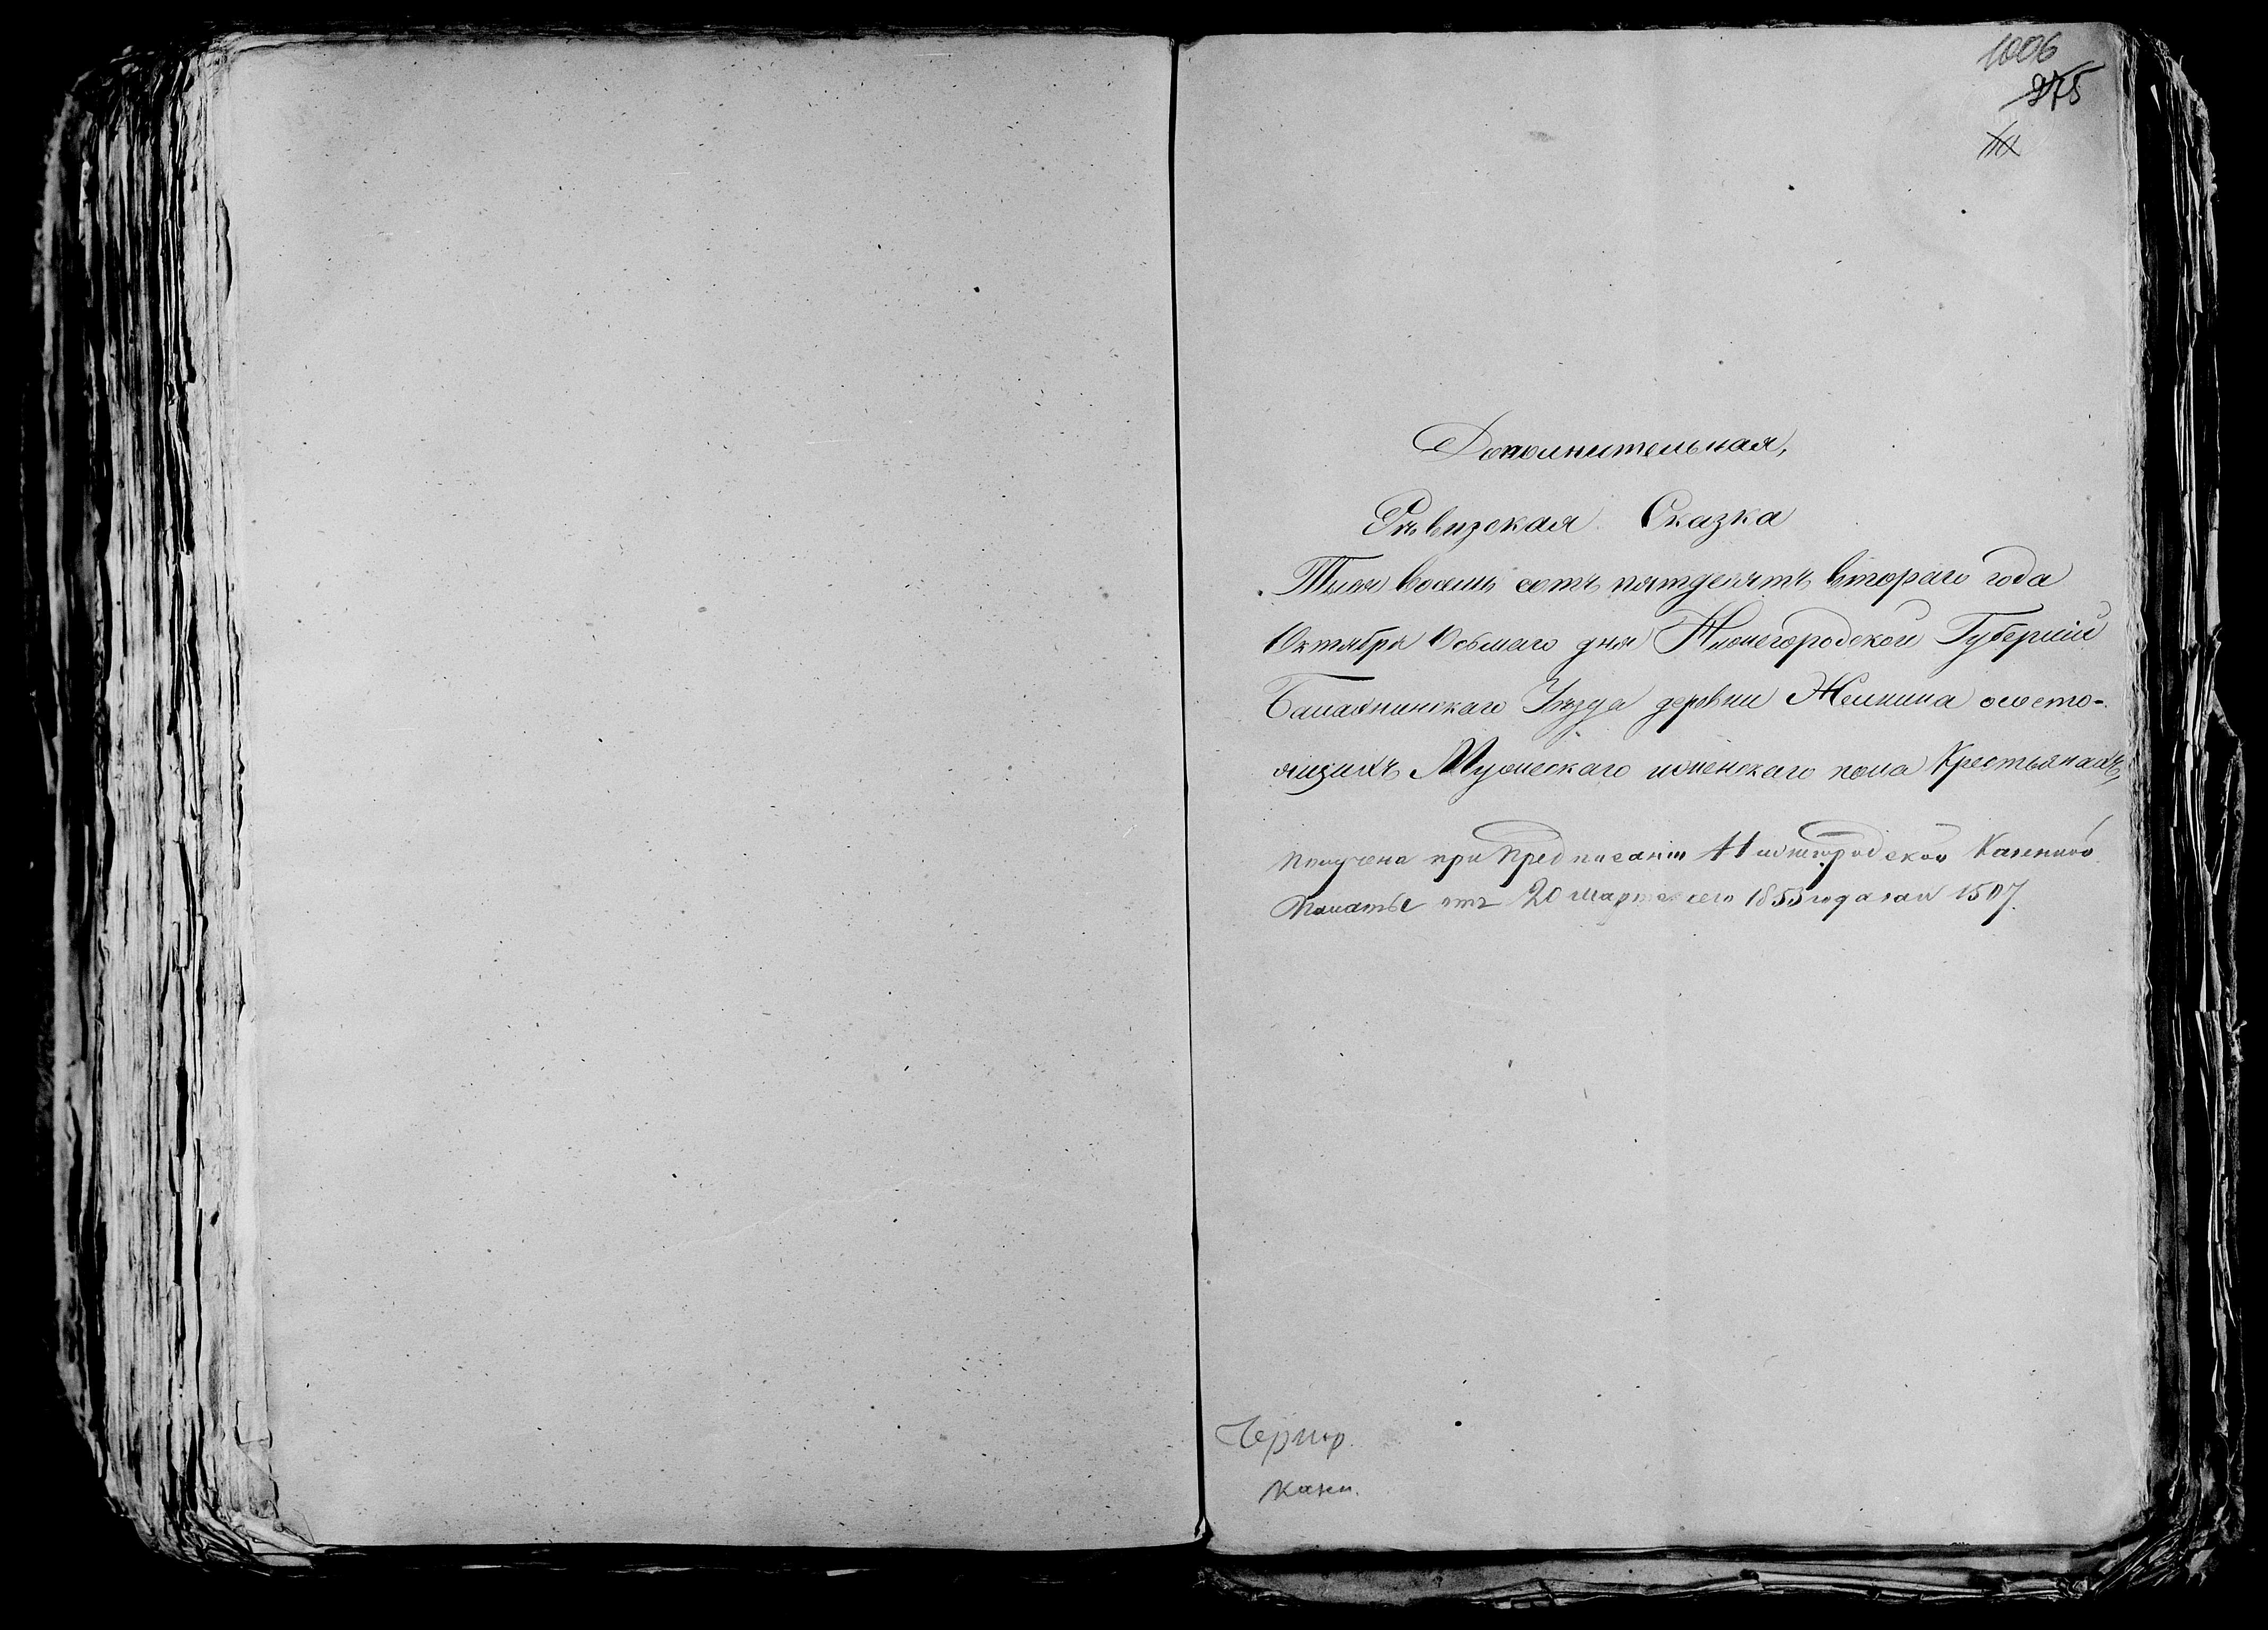 1006
975
Дополнительная,
Рѣвизская Сказка
Тысяч восемь сотъ пятдесятъ втораго года
Октября Осьмаго дня Нижегородской Губерніи
Балахнинскаго Уѣзда деревни Желнина ососто-
ящихъ Мужескаго иженскаго пола Крестьянахъ,
Получена при предписаніи Нижегородской Казенной
Палаты отъ 20 марта сего 1853 года за № 1507.
Чернор.
Казен.